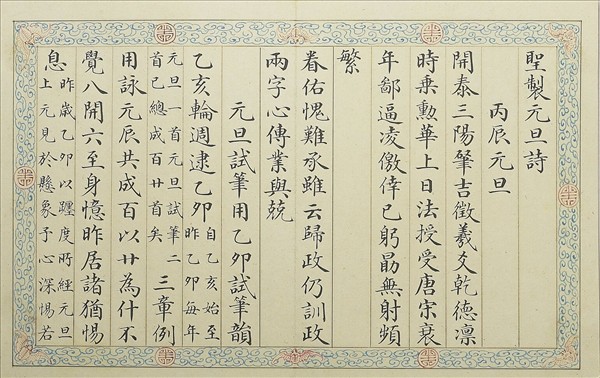 聖製元旦詩
丙辰元旦
開泰三陽肇吉徵羲爻乾德凛
時乗勲華上日法授受唐宋衰
年鄙逼凌儌倖已躬勗無射頻
繁
眷佑愧難承雖云歸政仍訓政
兩字心傳業與兢
元旦試筆用乙卯試筆韻
乙亥輪週逮乙卯
自乙亥始至
昨乙卯每年
元旦一首元旦試筆二
首已總成百廿首矣
三章例
用詠元辰共成百以廿為什不
覺八開六至身憶昨居諸猶惕
息
昨歳乙卯以躔度時經元旦
上元見於懸象予心深惕若